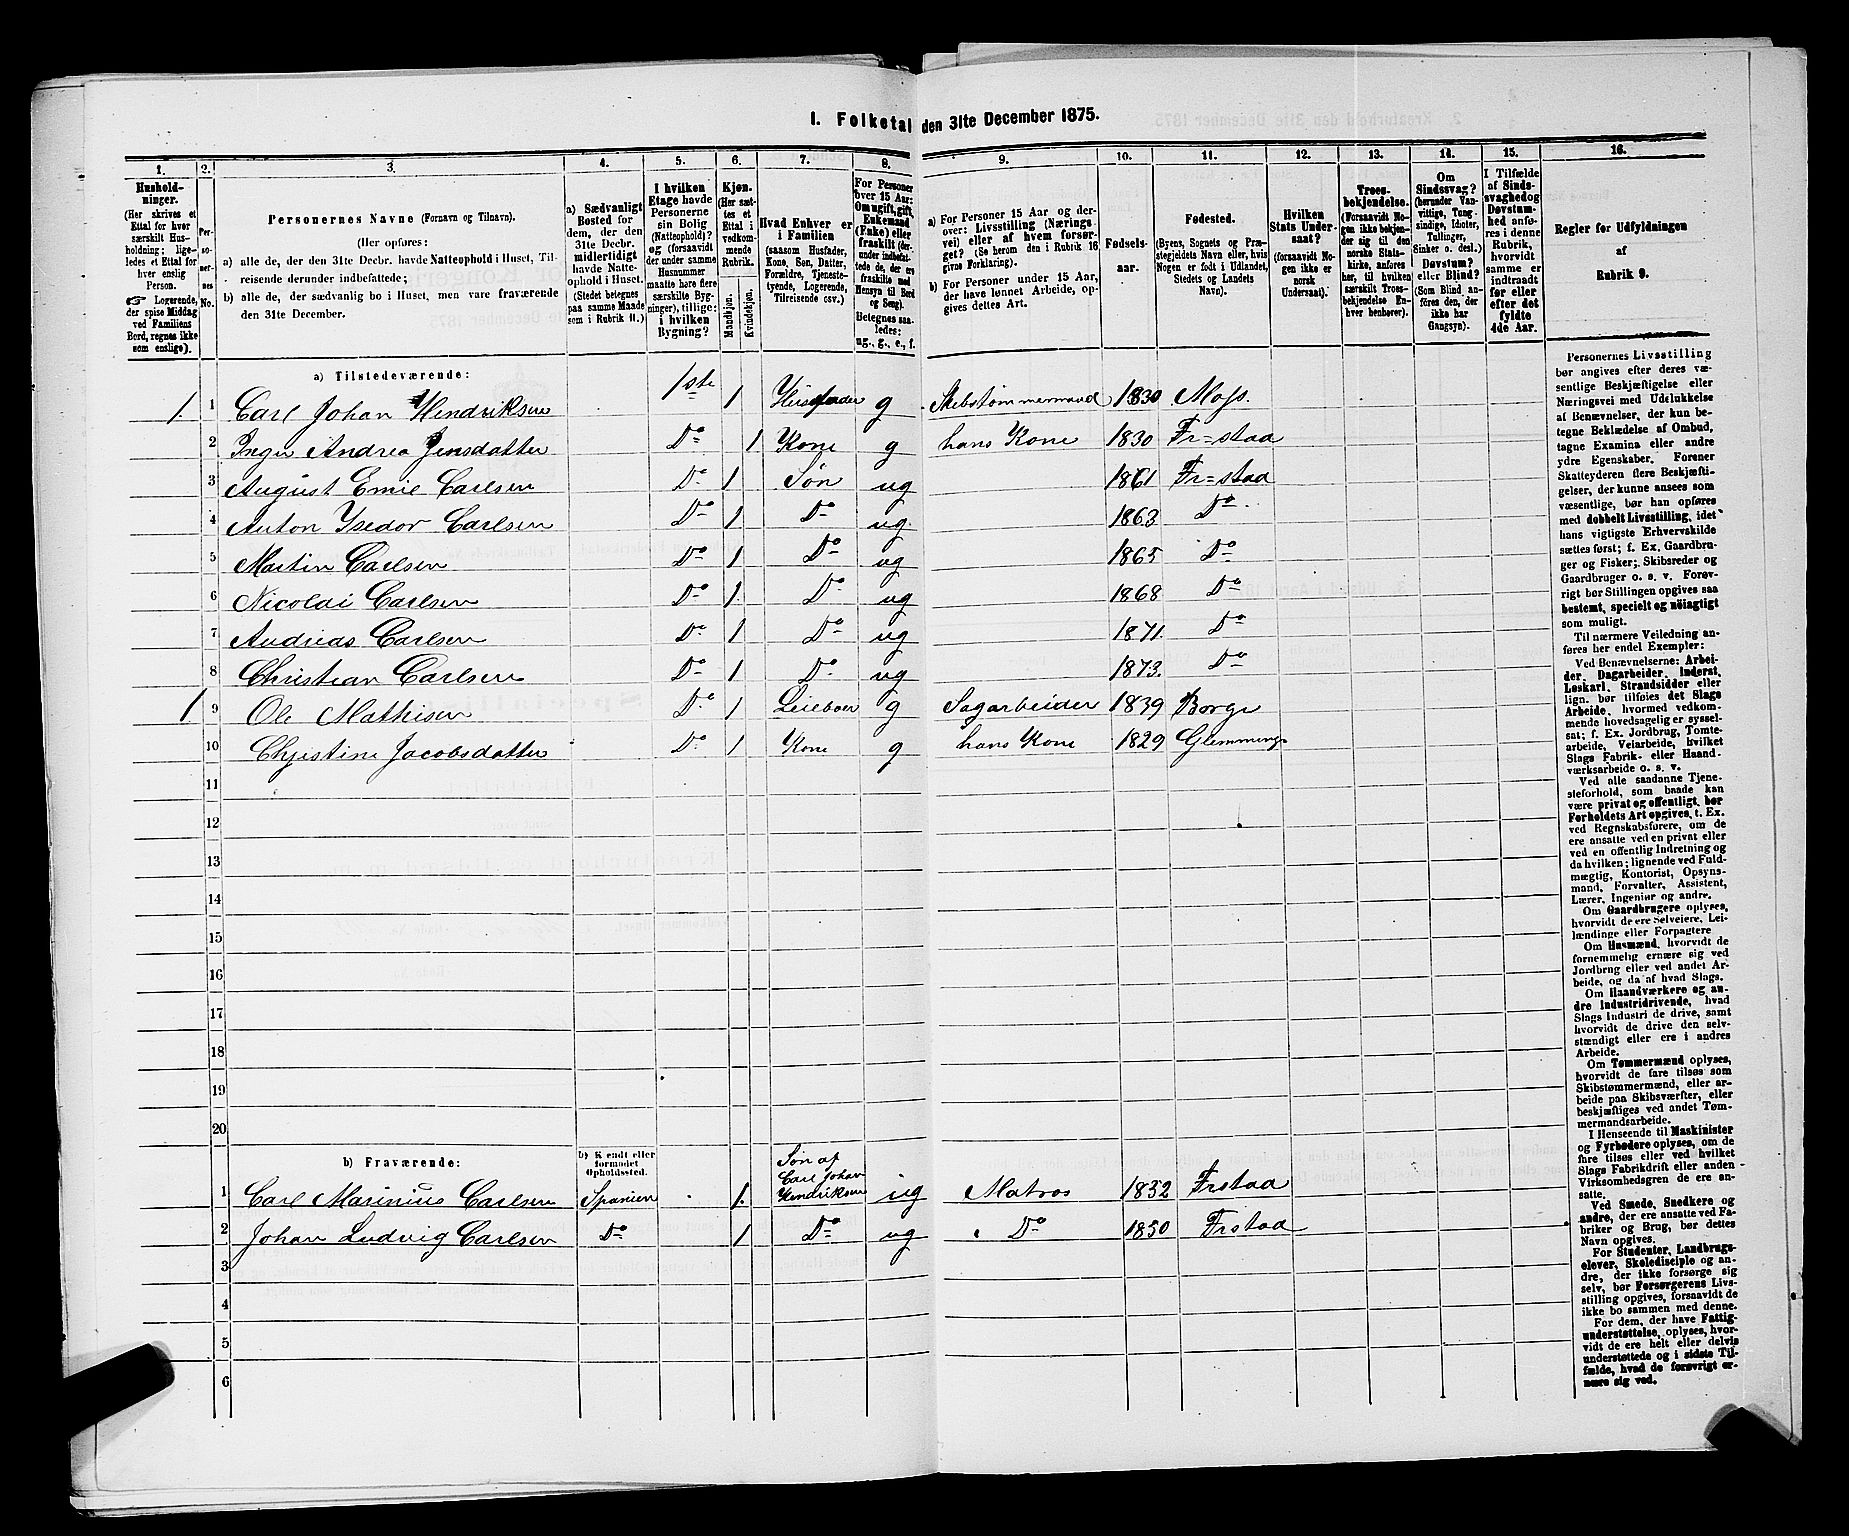 1. Folketal den 31te December 1875.
1. 2. 3. 4. 5. 6. 7. 8. 9. 10. 11. 12. 13. 14. 15. 16.
Hushold-
ninger.
(Her skrives et
Ettal for hver
særskilt Hus-
holdning; lige-
ledes et Ettal for
hver enslig
Person.
☞ Logerende,
der spise Middag
ved Familiens
Bord, regnes ikke
som enslige).
Per-
so-
ner-
nes
No.
Personernes Navne (Fornavn og Tilnavn).
(Her opføres:
a) alle de, der den 31te Decbr. havde Natteophold i Huset, Til-
reisende derunder indbefattede;
b) alle de, der sædvanlig bo i Huset, men vare fraværende
den 31te December.
a) Sædvanligt
Bosted for
dem, der den
31te Decbr.
midlertidigt
havde Natte-
ophold i Huset.
(Stedet betegnes
paa samme Maade
som i Rubrik 11.)
I hvilken
Etage havde
Personerne
sin Bolig
(Natteophold)?
og (forsaavidt
der under samme
Husnummer
maatte høre flere
særskilte Byg-
ninger), tillige:
i hvilken
Bygning?
Kjøn.
(Her sæt-
tes et
Ettal i
vedkom-
mende
Rubrik.
Mandkjøn.
Kvindekjøn.
Hvad Enhver er
i Familien
(saasom Husfader,
Kone, Søn, Datter,
Forældre, Tjeneste-
tyende, Logerende,
Tilreisende osv.)
For Personer
over 15 Aar:
Om ugift, gift,
Enkemand
(Enke) eller
fraskilt (der-
under indbefat-
tede de, der ere
fraskilte med
Hensyn til Bord
og Seng).
Betegnes saa-
ledes:
ug., g., e., f.
a) For Personer 15 Aar og der-
over: Livsstilling (Nærings-
vei) eller af hvem forsør-
get? (Se herom den i Rubrik 16
givne Forklaring).
b) For Personer under 15 Aar,
der have lønnet Arbeide, op-
gives dettes Art.
Fødsels-
aar.
Fødested.
(Byens, Sognets og Præ-
stegjeldets Navn eller, hvis
Nogen er født i Udlandet,
Stedets og Landets
Navn).
Hvilken
Stats Under-
saat?
(forsaavidt No-
gen ikke er
norsk
Undersaat).
Troes-
bekjendelse.
(Forsaavidt No-
gen ikke bekjen-
der sig til den
norske Stats-
kirke, anføres
her, til hvilken
særskilt Troes-
bekjendelse En-
hver henhører).
Om
Sindssvag?
(herunder Van-
vittige, Tung-
sindige, Idioter,
Tullinger,
Sinker o. desl.)
Døvstum?
eller Blind?
(Som Blind an-
føres den, der
ikke har
Gangsyn).
I Tilfælde
af Sinds-
svaghed og
Døvstum-
hed anfø-
res i denne
Rubrik,
hvorvidt
samme er
indtraadt
før eller
efter det
fyldte
4de Aar.
Regler for Udfyldningen
af
Rubrik 9.
a) Tilstedeværende:
1 1 Carl Johan Hendriksen 1ste 1 Husfader g Skibstømmermand 1830 Moss.
2 Inger Andrea Jensdatter Do 1 Kone g hans Kone 1830 Fr=stad
3 August Emil Carlsen Do 1 Søn ug 1861 Fr=stad
4 Anton Isedor Carlsen Do 1 Do ug. 1863 Do
5 Martin Carlsen Do 1 Do ug 1865 Do
6 Nicolai Carlsen Do 1 Do ug 1868 Do
7 Andreas Carlsen Do 1 Do ug 1871. Do
8 Christian Carlsen Do 1 Do ug 1873. Do
1 9 Ole Mathisen Do 1 Leieboer g Sagarbeider 1839 Borge
10 Christine Jacobsdatter Do 1 Kone g hans Kone 1829 Glemminge
11
12
13
14
15
16
17
18
19
20
b) Fraværende:
b) Kjendt eller
formodet
Opholdssted.
1 Carl Marinius Carlsen Spanien 1. Søn af
Carl Johan
Hendriksen ug Matros 1832 Frstad
2 Johan Ludvig Carlsen Do 1 Do ug Do 1850 Frstad
3
4
5
6
Personernes Livsstilling
bør angives efter deres væ-
sentlige Beskjæftigelse eller
Næringsvei med Udelukkelse
af Benævnelser, der kun be-
tegne Beklædelse af Ombud,
tagne Examina eller andre
ydre Egenskaber. Forener
Skatteyderen flere Beskjæfti-
gelser, der kunne ansees som
væsentlige, bør han opføres
med dobbelt Livsstilling, idet
hans vigtigste Erhvervskilde
sættes først; f. Ex. Gaardbru-
ger og Fisker; Skibsreder og
Gaardbruger o. s. v. Forøv-
rigt bør Stillingen opgives saa
bestemt, specielt og nøiagtigt
som muligt.
Til nærmere Veiledning an-
føres her endel Exempler:
Ved Benævnelserne: Arbei-
der, Dagarbeider, Inderst,
Løskarl, Strandsidder eller
lign. bør tilføies det Slags
Arbeide, hvormed vedkom-
mende hovedsagelig er syssel-
sat; f. Ex. Jordbrug, Tomte-
arbeide, Veiarbeide, hvilket
Slags Fabrik- eller Haand-
værksarbeide o. s. v.
Ved alle saadanne Tjene-
steforhold, som baade kan
være privat og offentligt, bør
Forholdets Art opgives, t. Ex.
ved Regnskabsførere, om de
ere ansatte ved en privat eller
ved en offentlig Indretning og
da hvilken; lignende ved Fuld-
mægtig, Kontorist, Opsyns-
mand, Forvalter, Assistent,
Lærer, Ingeniør og andre.
Om Gaardbrugere oplyses,
hvorvidt de ere Selveiere, Lei-
lændinge eller Forpagtere
Om Husmænd, hvorvidt de
fornemmelig ernære sig ved
Jordbrug eller ved andet Ar-
beide, og da af hvad Slags.
Om Haandværkere og an-
dre Industridrivende, hvad
Slags Industri de drive, samt
hvorvidt de drive den selv-
stændigt eller ere i andres
Arbeide.
Om Tømmermænd oplyses,
hvorvidt de fare tilsøs som
Skibstømmermænd, eller ar-
beide paa Skibsværfter, eller
beskjæftiges ved andet Tøm-
mermandsarbeide.
I Henseende til Maskinister
og Fyrbødere oplyses, om de
fare tilsøs eller ved hvilket
Slags Fabrikdrift eller anden
Virksomhedsgren de ere an-
satte.
Ved Smede, Snedkere og
andre, der ere ansatte ved Fa-
briker og Brug, bør dettes
Navn opgives.
For Studenter, Landbrugs-
elever, Skoledisciple og an-
dre, der ikke forsørge sig
selv, bør Forsørgerens Livs-
stilling opgives, forsaavidt de
ikke bo sammen med denne.
For dem, der have Fattig-
understøttelse, oplyses, hvor-
vidt de ere helt eller delvis
understøttede og i sidste Til-
fælde, hvad de forøvrigt er-
nære sig ved.